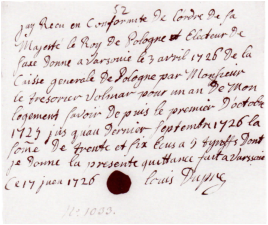 52
jay Receu en Conformité de Lordre de sa
Majesté le Roy de Pologne et Electeur de
saxe donné a Varsovie le 3 avril 1726 de la
Caisse generale de Pologne par Monsieur
le tresorier Volmar pour un an De Mon
logement savoir Depuis le premier d'octobre
1725 jusquau dernier septembre 1726 la
some de trente et six Ecus a 9 tynffs Dont
je donne la presente quittance fait a Varsovie
Ce 17 1726 louis Dupre
No. 1033.